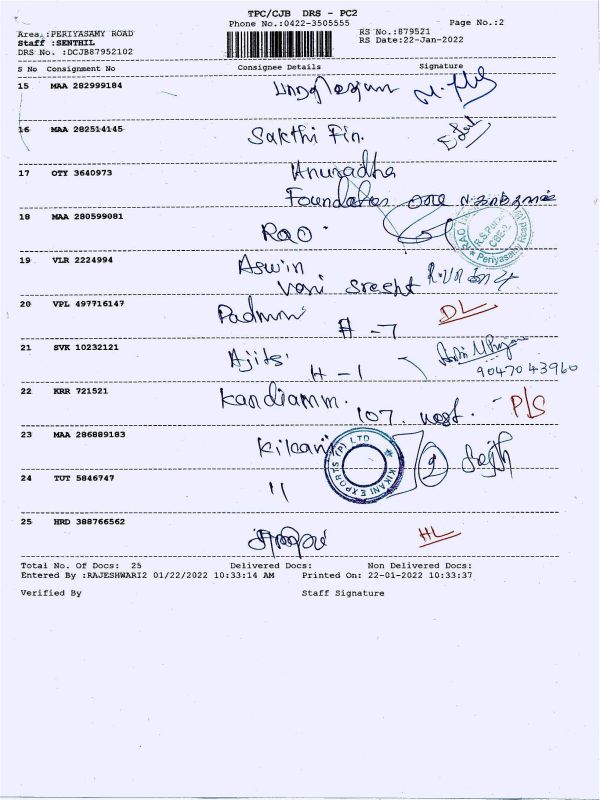 TPC/CJB DRS - PC2
Phone No.:0422-3505555
Page No.:2
Area :PERIYASAMY ROAD
Staff :SENTHIL
DRS No. :DCJB87952102
RS No.:879521
RS Date:22-Jan-2022
S No Consignment No Consignee Details Signature
15 MAA 282999184
16 MAA 282514145 Sakthi Fin.
17 OTY 3640973 Anuradha
Foundation
18 MAA 280599081 Rao
19 VLR 2224994 Aswin
20 VPL 497716147 Padmini DL
# -7
21 SVK 10232121 Ajits
H -1 9047043960
22 KRR 721521 Kandiamm. 107. west. P/S
23 MAA 286889183 Kikani
KIKANI EXPORTS (P) LTD
24 TUT 5846747 11
25 HRD 388766562 HL
Total No. Of Docs: 25 Delivered Docs: Non Delivered Docs:
Entered By :RAJESHWARI2 01/22/2022 10:33:14 AM Printed On: 22-01-2022 10:33:37
Verified By Staff Signature